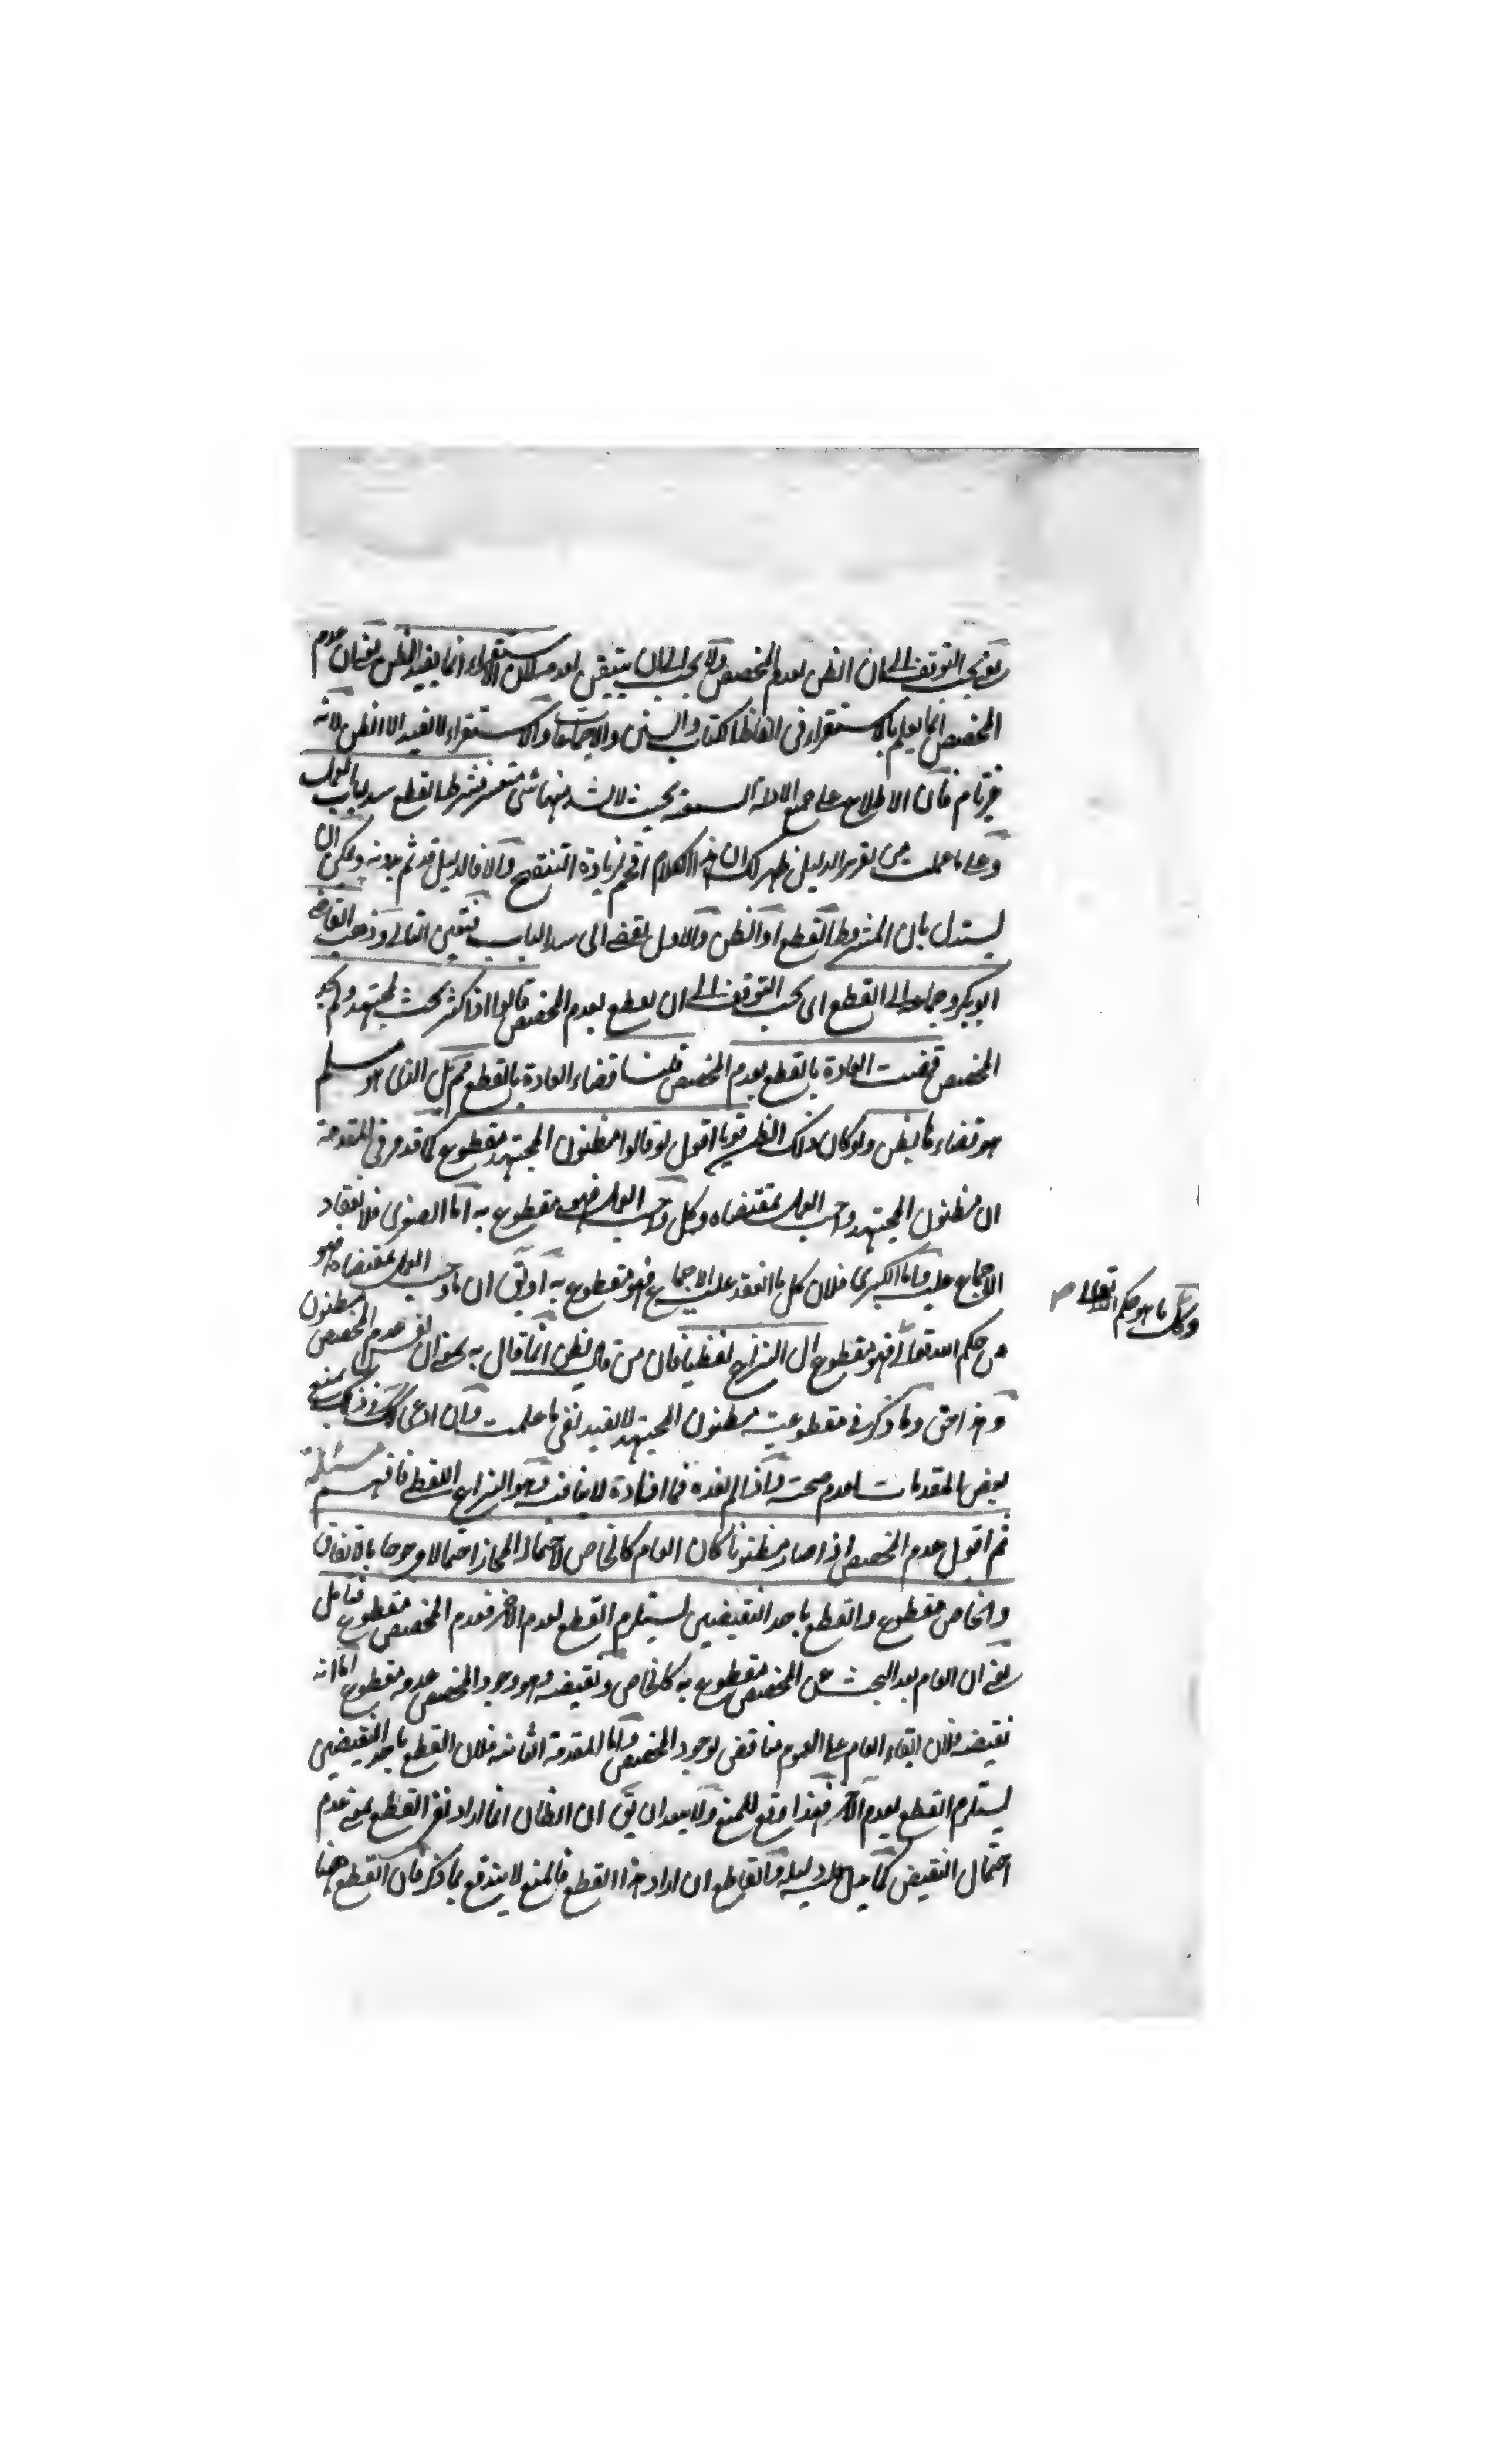 يعني يجب التوقف الى ان الظن بعدم المخصص ولا يجب الى ان يتيقن بعدمه لان الاستقراء انما يفيد الظن يعني ان عدم
المخصص انما يعلم بالاستقراء في الفاظ الكتاب والسنن والاجماعات والاستقراء لا يفيد الا الظن لانه
غير تام فان الاطلاع على جميع الادلة السمعية بحيث لا يشذ منها شئ متعسر فشرط القطع سد لباب العمل
وعلى ما علمت من تقرير الدليل ظهر لك ان هذا الكلام اقحم لزيادة التنقيح والا فالدليل قد تم بدونه ويمكن ان
يستدل بان المشروط القطع او الظن والاول يفضي الى سد الباب فتعين الثاني وذهب القاضي
ابو بكر وجماعة الى القطع اي يجب التوقف الى ان يقطع بعدم المخصص قالوا اذا كثر بحث المجتهد ولم يجد
المخصص قضت العادة بالقطع بعدم المخصص قلنا قضاء العادة بالقطع مم بل الذي هو مسلم
هو قضاءها بظن ولو كان ذلك الظن قويا اقول لو قالوا مظنون المجتهد مقطوع كما قد مر في المقدمة
ان مظنون المجتهد واجب العمل بمقتضاه وكل واجب العمل فهو مقطوع به اما الصغرى فلانعقاد
الاجماع عليه واما الكبرى فلان كل ما انعقد عليه الاجماع فهو مقطوع به او يق ان ما وجب العمل بمقتضاه فهو
من حكم الله تعالى فهو مقطوع ال النزاع لفظيا فان من قال بظن انما قال به بمعنى ان نفس عدم المخصص مظنون
وهذا حق وما ذكر في مقطوعية مظنون المجتهد لا يفيد نفي ما علمت وان ادعى ذلك يمنع
بعض المقدمات لعدم صحته واذا لم يفده فما افاده لا ينافيه وهو النزاع اللفظي فافهم مسئلة
ثم اقول عدم المخصص اذا صار مظنونا كان العام كالخاص لاحتماله المجاز احتمالا مرجوحا بالاتفاق
والخاص مقطوع والقطع باحد النقيضين يستلزم القطع بعدم الاخر فعدم المخصص مقطوع فتامل
يعني ان العام بعد البحث عن المخصص مقطوع به كالخاص ونقيضه وهو وجود المخصص عدمه مقطوع اما انه
نقيضه فلان ابقاء العام على العموم مناقض لوجود المخصص واما المقدمة الثانية فلان القطع باحد النقيضين
يستلزم القطع بعدم الاخر فهذا وقع للمنع ولا يبعد ان يق ان الظان انما اراد نفي القطع بمعنى عدم
احتمال النقيض كما يدل عليه دليله والقاطع ان اراد هذا القطع فالمنع لا يندفع بما ذكر فان القطع ههنا
وكل ما هو حكم الله تعالى ص